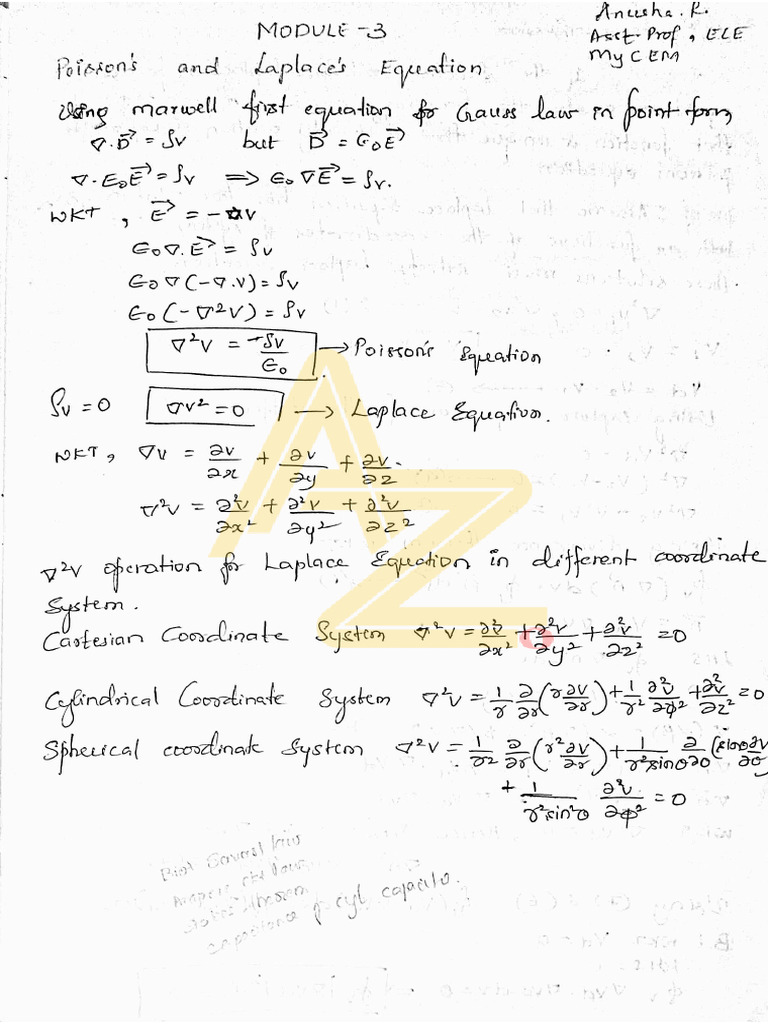 Anusha. R.
Asst. Prof, ECE
MyCEM
MODULE -3
Poisson's and Laplace's Equation
Using maxwell first equation for Gauss law in point form
∇.D⃗ = ρv but D⃗ = ϵ₀E⃗
∇.ϵ₀E⃗ = ρv ⇒ ϵ₀∇E⃗ = ρv.
WKT, E⃗ = -∇v
ϵ₀∇.E⃗ = ρv
ϵ₀∇(-∇.v) = ρv
ϵ₀(-∇²v) = ρv
∇²v = -ρv/ϵ₀ → Poisson's Equation
ρv = 0 ∇v² = 0 → Laplace Equation.
WKT, ∇v = ∂v/∂x + ∂v/∂y + ∂v/∂z
∇²v = ∂²v/∂x² + ∂²v/∂y² + ∂²v/∂z²
∇²v operation for Laplace Equation in different coordinate
System.
Cartesian Coordinate System ∇²v = ∂²v/∂x² + ∂²v/∂y² + ∂²v/∂z² = 0
Cylindrical Coordinate System ∇²v = 1/r ∂/∂r (r∂v/∂r) + 1/r² ∂²v/∂φ² + ∂²v/∂z² = 0
Spherical coordinate System ∇²v = 1/r² ∂/∂r (r²∂v/∂r) + 1/r²sinθ ∂/∂θ (sinθ∂v/∂θ)
+ 1/r²sin²θ ∂²v/∂φ² = 0
of cyl capacito.